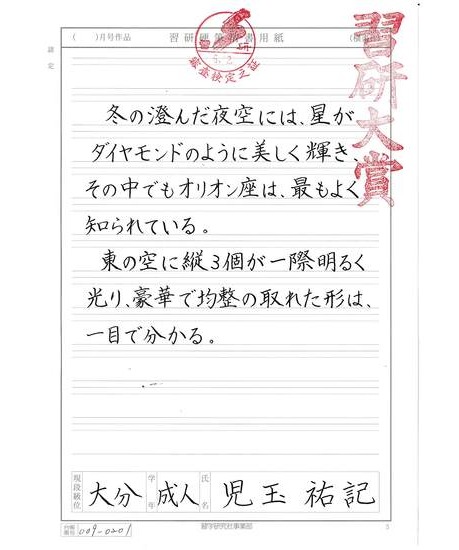 ( )月号作品 習研硬筆清書用紙
認定
習研大賞
厳査検定之証
冬の澄んだ夜空には、星が
ダイヤモンドのように美しく輝き、
その中でもオリオン座は、最もよく
知られている。
東の空に縦3個が一際明るく
光り、豪華で均整の取れた形は、
一目で分かる。
現段級位 大分 学年 成人 氏名 児玉 祐記
009-0201 習字研究社事業部